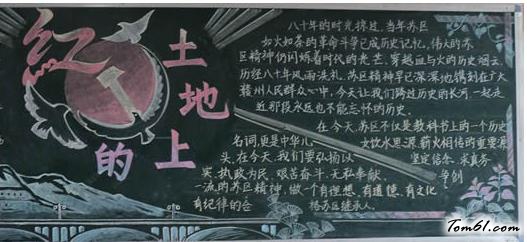 红
土地上
的
八十年的时光掠过,当年苏区
如火如荼的革命斗争已成历史记忆,伟大的苏
区精神仍闪烁着时代的光芒。穿越血与火的历史烟云,
历经八十年风雨洗礼,苏区精神早已深深地镌刻在广大
赣州人民群众心中,今天让我们跨过历史的长河,一起走
近那段永远也不能忘怀的历史。
在今天,苏区不仅是教科书上的一个历史
名词,更是中华儿女饮水思源、薪火相传的重要源
头,在今天,我们要弘扬以坚定信念、求真务
实、执政为民、艰苦奋斗、无私奉献、争创
一流的苏区精神,做一个有理想,有道德,有文化
有纪律的合格苏区继承人。
Tom61.com